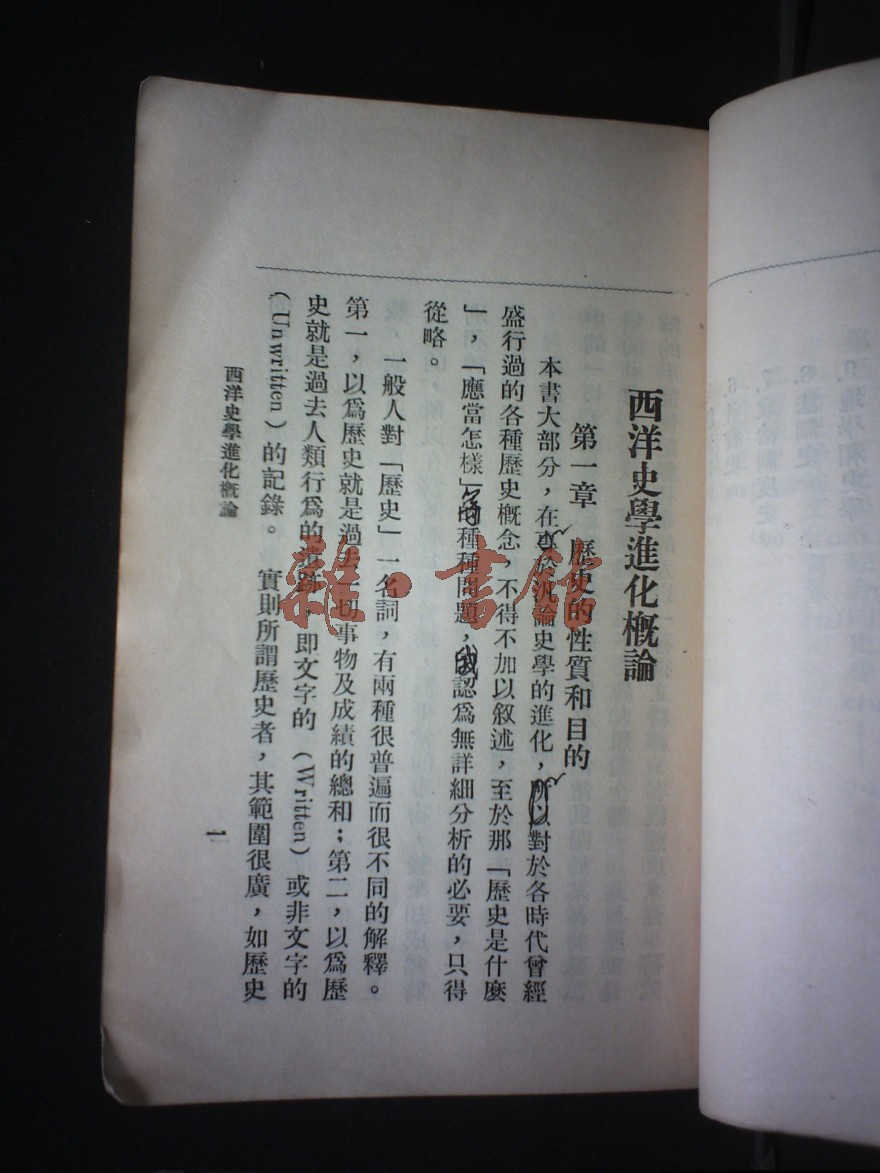 西洋史學進化概論
第一章 歷史的性質和目的
本書大部分,在專於討論史學的進化,所以對於各時代曾經
盛行過的各種歷史概念,不得不加以叙述,至於那「歷史是什麼
」,「應當怎樣」的種種問題,我認爲無詳細分析的必要,只得
從略。
一般人對「歷史」一名詞,有兩種很普遍而很不同的解釋。
第一,以爲歷史就是過去一切事物及成績的總和;第二,以爲歷
史就是過去人類行爲的遺跡,即文字的(Written)或非文字的
(Unwritten)的記錄。實則所謂歷史者,其範圍很廣,如歷史
西洋史學進化概論
一
雜·書館